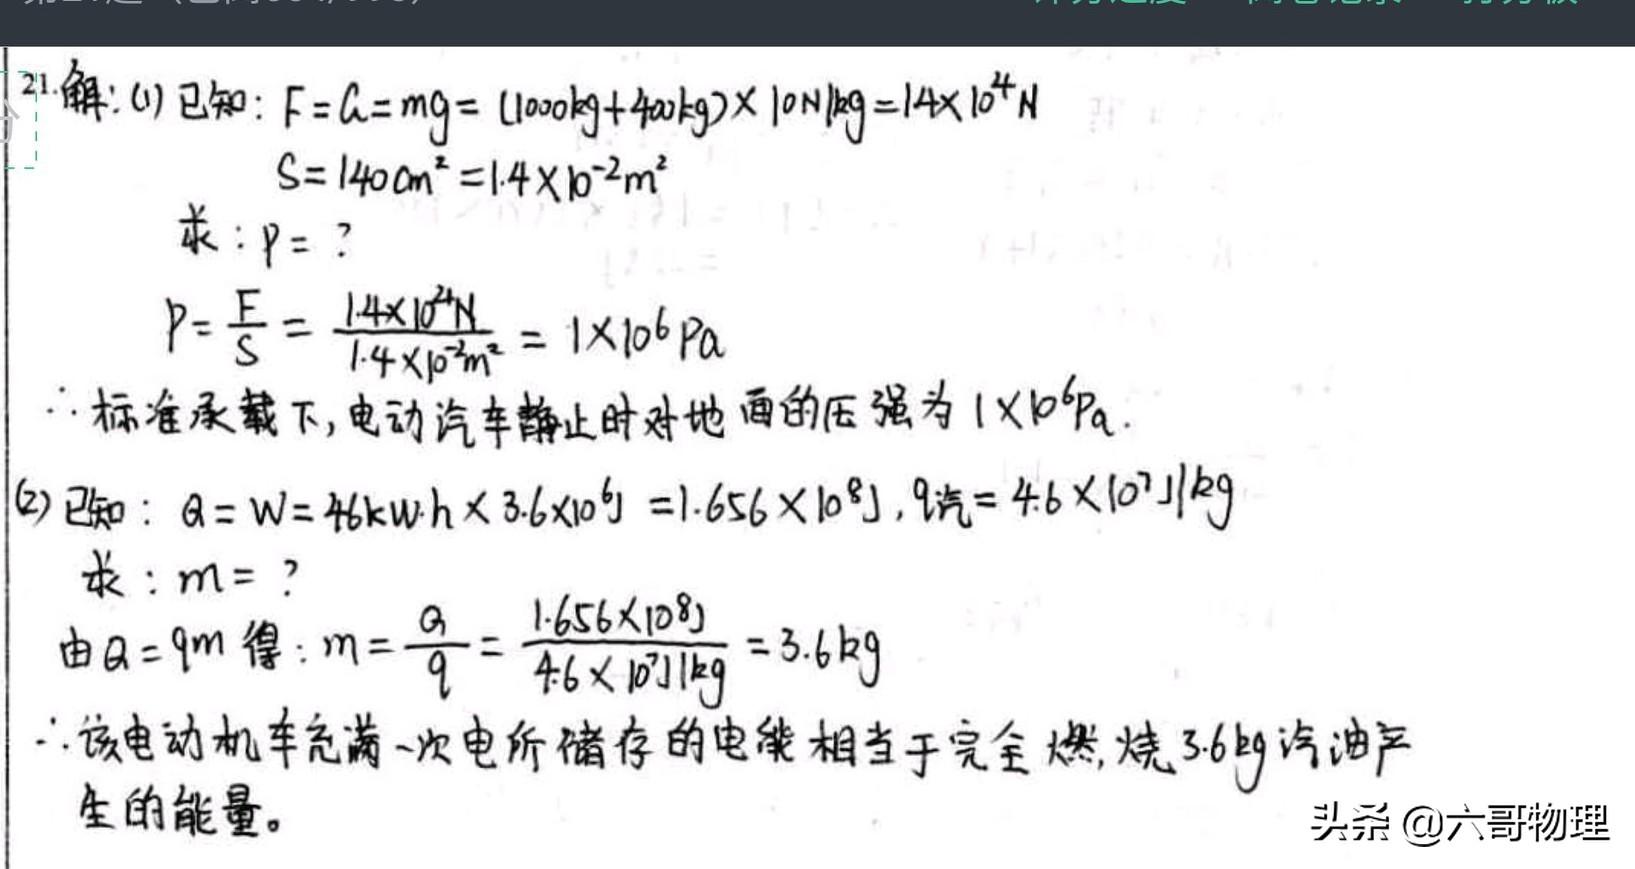 21.解:(1)已知: F=G=mg=(1000kg+400kg)×10N/kg=1.4×10⁴N
S=140cm²=1.4×10⁻²m²
求:p=?
p=F/S=1.4×10⁴N/1.4×10⁻²m²=1×10⁶Pa
∴标准承载下,电动汽车静止时对地面的压强为1×10⁶Pa.
(2)已知:Q=W=46kW·h×3.6×10⁶J=1.656×10⁸J,q汽=4.6×10⁷J/kg
求:m=?
由Q=qm得:m=Q/q=1.656×10⁸J/4.6×10⁷J/kg=3.6kg
∴该电动机车充满一次电所储存的电能相当于完全燃烧3.6kg汽油产
生的能量。
头条 @六哥物理